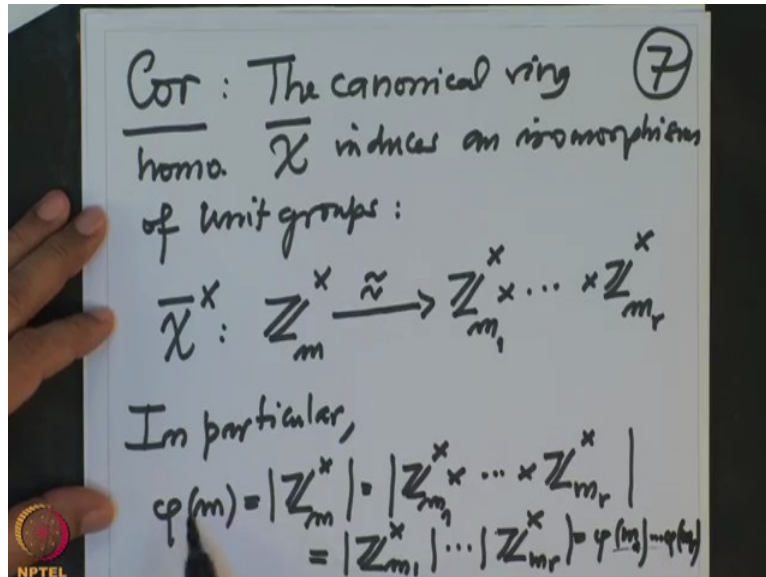 Cor : The canonical ring ⑦
homo. χ̅ induces an isomorphism
of unit groups :
χ̅^× : ℤ_m^× ⥲ ℤ_{m_1}^× × ⋯ × ℤ_{m_r}^×
In particular,
φ(m) = |ℤ_m^×| = |ℤ_{m_1}^× × ⋯ × ℤ_{m_r}^×|
= |ℤ_{m_1}^×| ⋯ |ℤ_{m_r}^×| = φ(m_1) ⋯ φ(m_r)
NPTEL